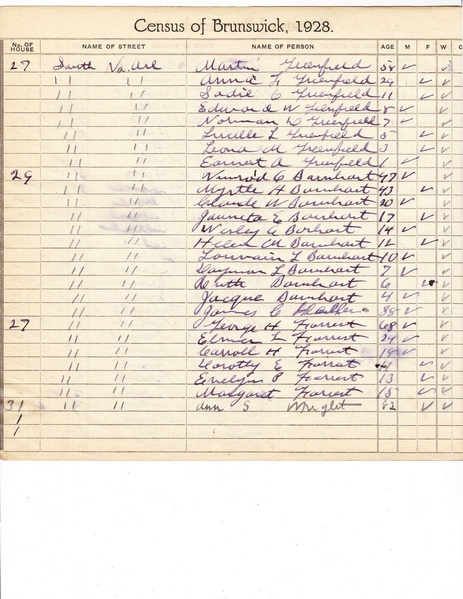 Census of Brunswick, 1928.
No. OF HOUSE NAME OF STREET NAME OF PERSON AGE M F W C
27 South Va. Ave Martin Greenfield ✓ ✓
" " Anna L Greenfield 29 ✓ ✓
" " Sadie C Greenfield 11 ✓ ✓
" " Edward W Greenfield 8 ✓ ✓
" " Norman D Greenfield 7 ✓ ✓
" " Lucille L Greenfield 5 ✓ ✓
" " Leona M Greenfield 3 ✓ ✓
" " Earnest A Greenfield 1 ✓ ✓
29 " " Nimrod C Barnhart 47 ✓ ✓
" " Myrtle H Barnhart 43 ✓ ✓
" " Claude W Barnhart 20 ✓ ✓
" " Jaunita E Barnhart 17 ✓ ✓
" " Wesley C Barhart 14 ✓ ✓
" " Helen M Barnhart 12 ✓ ✓
" " Louvain L Barnhart 10 ✓ ✓
" " L Barnhart 7 ✓ ✓
" " Ruth Barnhart 6 ✓
" " Jacque Barnhart 4 ✓ ✓
" " James C 38 ✓ ✓
27 " " George H Forrest 68 ✓ ✓
" " Elmer L Forrest 24 ✓ ✓
" " Carroll H Forrest 19 ✓ ✓
" " Dorothy E Forrest ✓ ✓
" " Evelyn P Forrest 13 ✓ ✓
" " Margaret Forrest 15 ✓ ✓
31 " " Ann S Wright 62 ✓ ✓
1
1